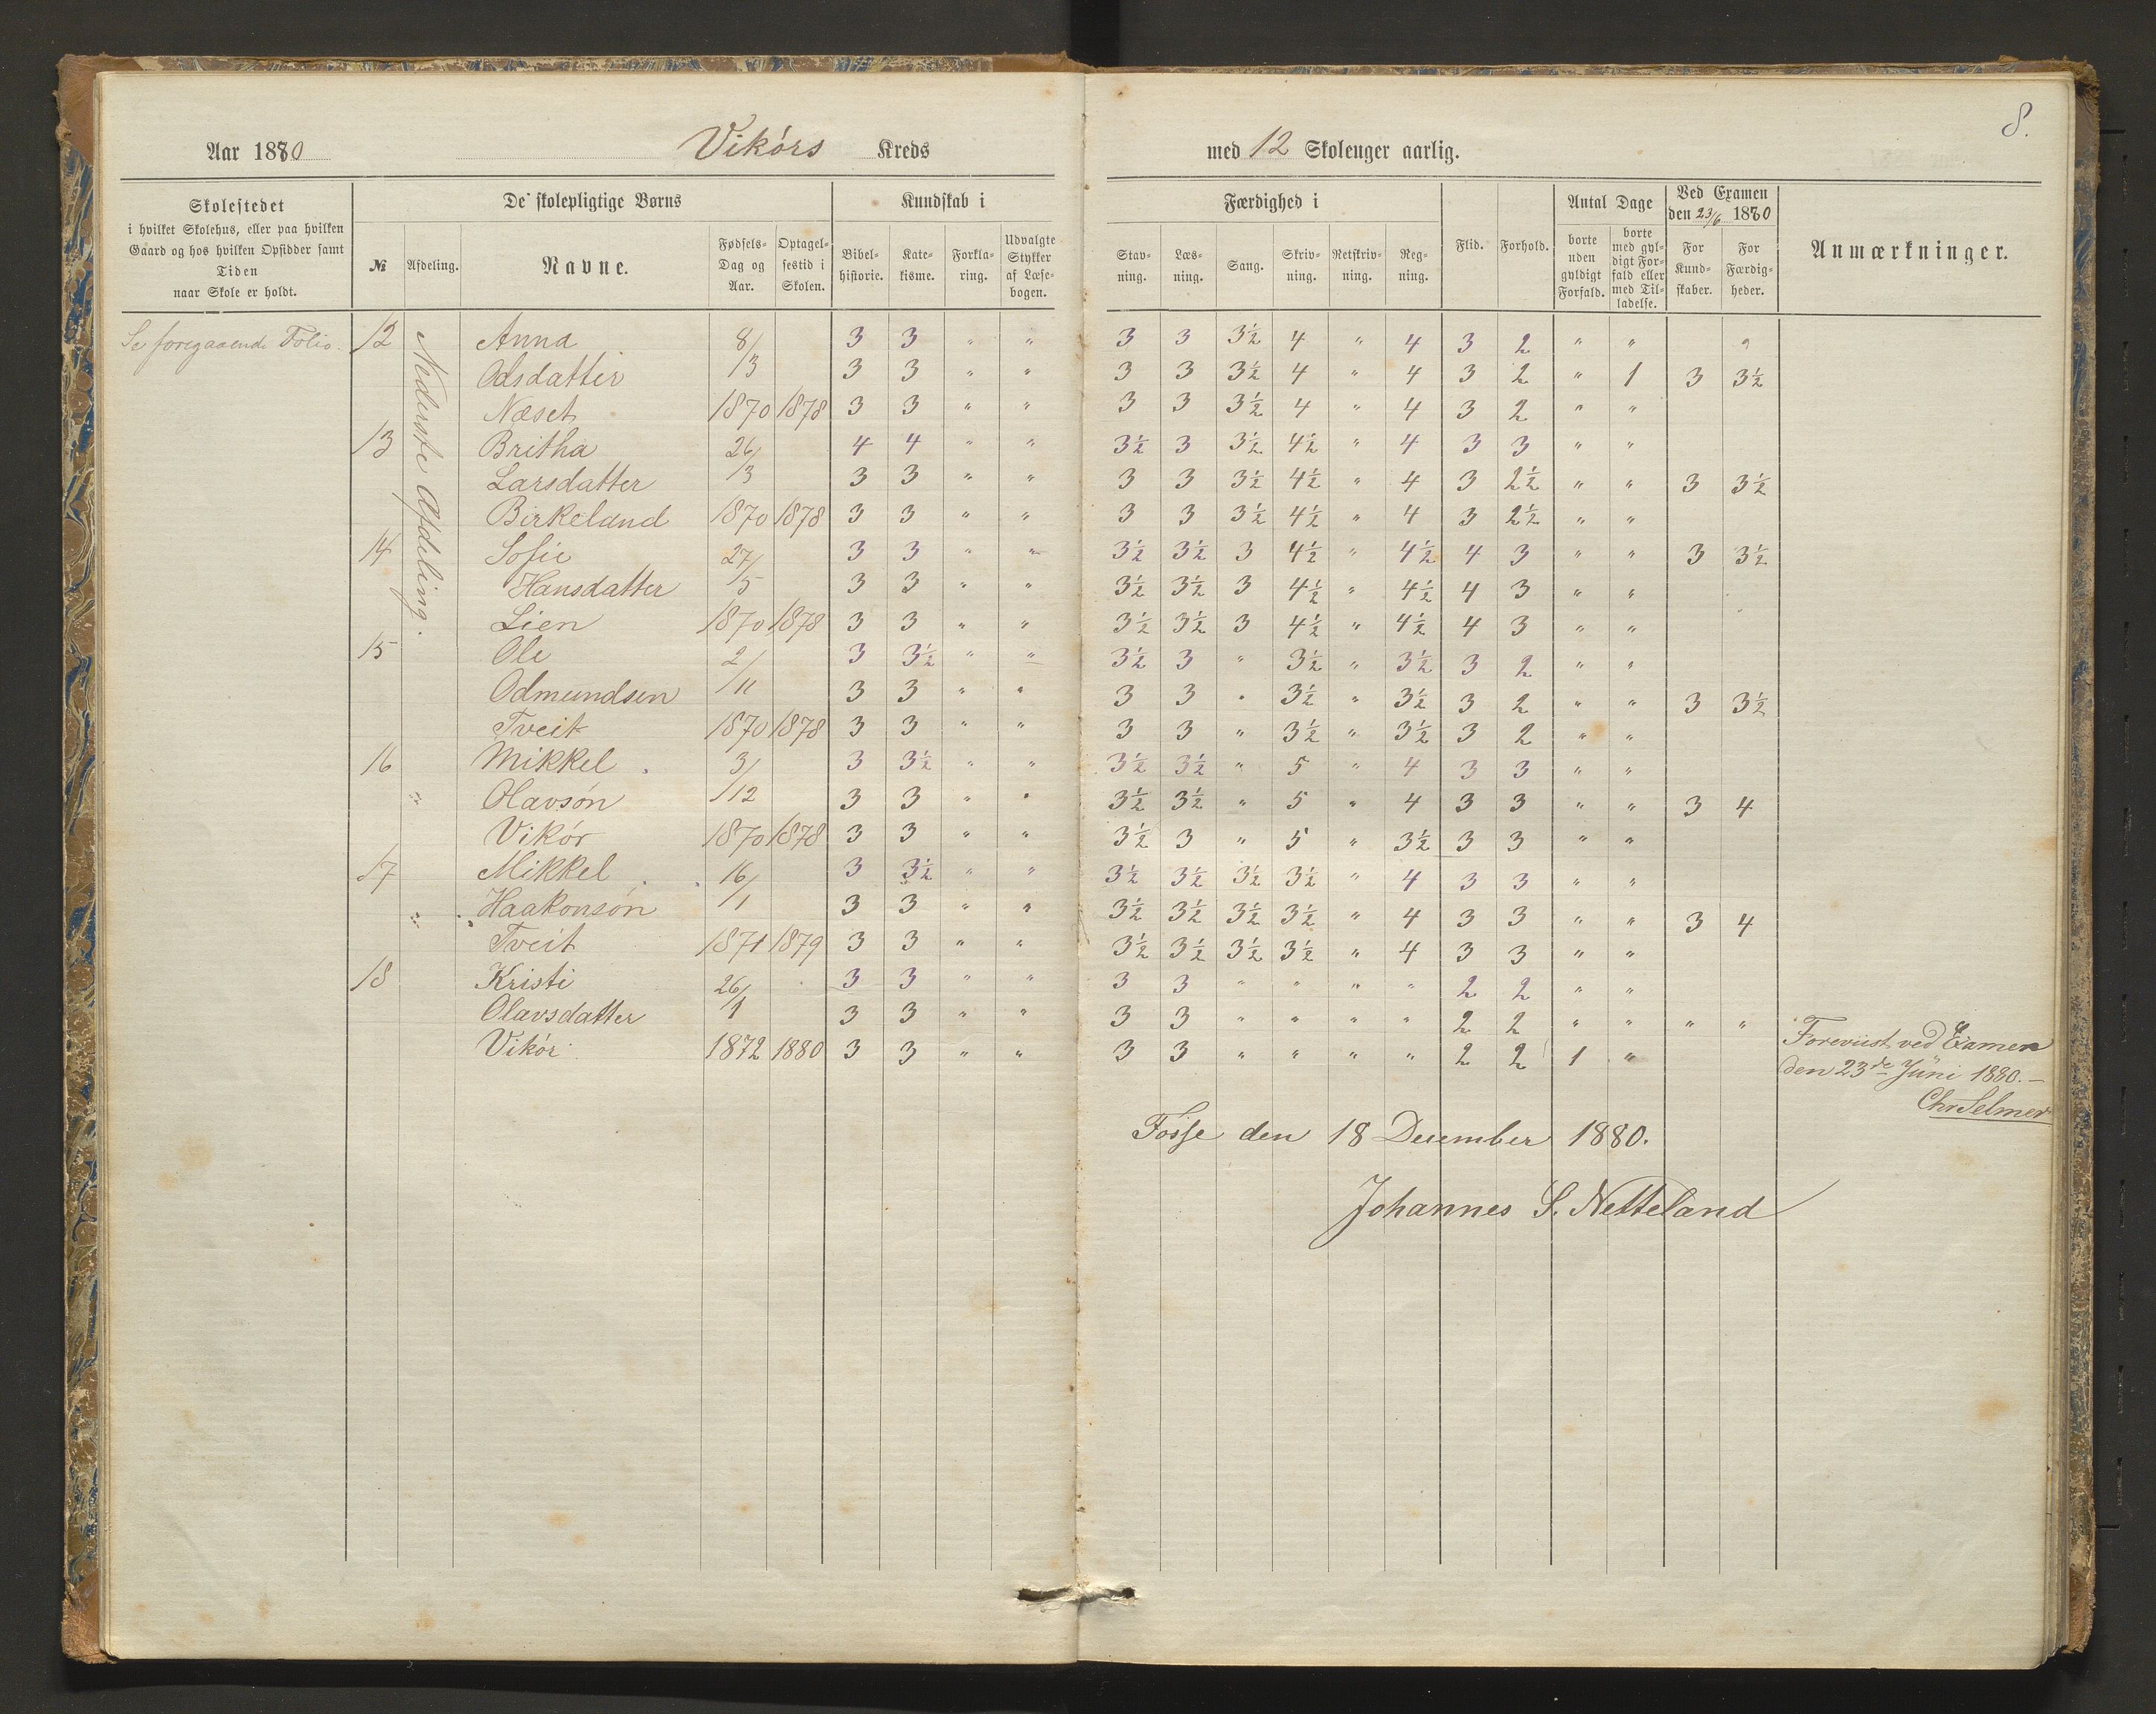 8.
Aar 1880 Vikörs Kreds med 12 Skoleuger aarlig.
Skolestedet
i hvilket Skolehus, eller paa hvilken
Gaard og hos hvilken Opsidder samt
Tiden
naar Skole er holdt.
De skolepligtige Børns
№ Afdeling. Navne. Fødsels-Dag og Aar. Optagel-sestid i Skolen.
Kundskab i
Bibel-historie. Kate-kisme. Forkla-ring. Udvalgte Stykker af Læse-bogen.
Færdighed i
Stav-ning. Læs-ning. Sang. Skriv-ning. Retskriv-ning. Reg-ning.
Flid. Forhold.
Antal Dage
borte uden gyldigt Forfald. borte med gyl-digt For-fald eller med Til-ladelse.
Ved Examen
den 23/6 1880
For Kund-skaber. For Færdig-heder.
Anmærkninger.
Se foregaaende Folio.
Nederste Afdeling.
12 Anna 8/ 3 3 " " 3 3 3½ 4 " 4 3 2 " "
Odsdatter /3 3 3 " " 3 3 3½ 4 " 4 3 2 " 1 3 3½
Næset 1870 1878 3 3 " " 3 3 3½ 4 " 4 3 2 " "
13 Britha 26/ 4 4 " " 3½ 3 3½ 4½ " 4 3 3 " "
Larsdatter /3 3 3 " " 3 3 3½ 4½ " 4 3 2½ " " 3 3½
Birkeland 1870 1878 3 3 " " 3 3 3½ 4½ " 4 3 2½ " "
14 Sofie 27/ 3 3 " " 3½ 3½ 3 4½ " 4½ 4 3 " " 3 3½
Hansdatter /5 3 3 " " 3½ 3½ 3 4½ " 4½ 4 3 " "
Lien 1870 1878 3 3 " " 3½ 3½ 3 4½ " 4½ 4 3 " "
15 Ole 2/ 3 3½ " " 3½ 3 " 3½ " 3½ 3 2 " "
Odmundsen /11 3 3 " " 3 3 " 3½ " 3½ 3 2 " " 3 3½
Tveit 1870 1878 3 3 " " 3 3 " 3½ " 3½ 3 2 " "
16 Mikkel 3/ 3 3½ " " 3½ 3½ " 5 " 4 3 3 " "
" Olavsøn /12 3 3 " " 3½ 3½ " 5 " 4 3 3 " " 3 4
Vikör 1870 1878 3 3 " " 3½ 3 " 5 " 3½ 3 3 " "
17 Mikkel 16/ 3 3½ " " 3½ 3½ 3½ 3½ " 4 3 3 " "
" Haakonsøn /1 3 3 " " 3½ 3½ 3½ 3½ " 4 3 3 " " 3 4
Tveit 1871 1879 3 3 " " 3½ 3½ 3½ 3½ " 4 3 3 " "
18 Kristi 26/ 3 3 " " 3 3 " " " " 2 2 " "
Olavsdatter /1 3 3 " " 3 3 " " " " 2 2 " " " "
Vikör 1872 1880 3 3 " " 3 3 " " " " 2 2 1 "
Foreviist ved Examen
den 23de Juni 1880.—
Chr Selmer
Fosse den 18 December 1880.
Johannes S. Netteland